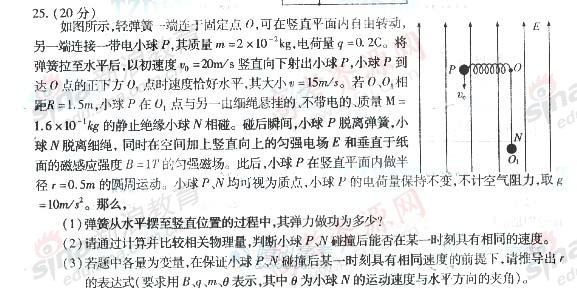 25. (20 分)
如图所示,轻弹簧一端连于固定点 O,可在竖直平面内自由转动,
另一端连接一带电小球 P,其质量 m=2×10⁻²kg,电荷量 q=0.2C。将
弹簧拉至水平后,以初速度 v₀=20m/s 竖直向下射出小球 P,小球 P 到
达 O 点的正下方 O₁ 点时速度恰好水平,其大小 v=15m/s。若 O、O₁ 相
距R=1.5m,小球 P 在 O₁ 点与另一由细绳悬挂的、不带电的、质量 M=
1.6×10⁻¹kg 的静止绝缘小球 N 相碰。碰后瞬间,小球 P 脱离弹簧,小
球 N 脱离细绳,同时在空间加上竖直向上的匀强电场 E 和垂直于纸
面的磁感应强度 B=1T的匀强磁场。此后,小球 P 在竖直平面内做半
径 r=0.5m 的圆周运动。小球 P、N 均可视为质点,小球 P 的电荷量保持不变,不计空气阻力,取 g
=10m/s²。那么,
(1)弹簧从水平摆至竖直位置的过程中,其弹力做功为多少?
(2)请通过计算并比较相关物理量,判断小球 P、N 碰撞后能否在某一时刻具有相同的速度。
(3)若题中各量为变量,在保证小球 P、N 碰撞后某一时刻具有相同速度的前提下,请推导出 r
的表达式(要求用 B、q、m、θ 表示,其中 θ 为小球 N 的运动速度与水平方向的夹角)。
E
P
O
v₀
N
O₁